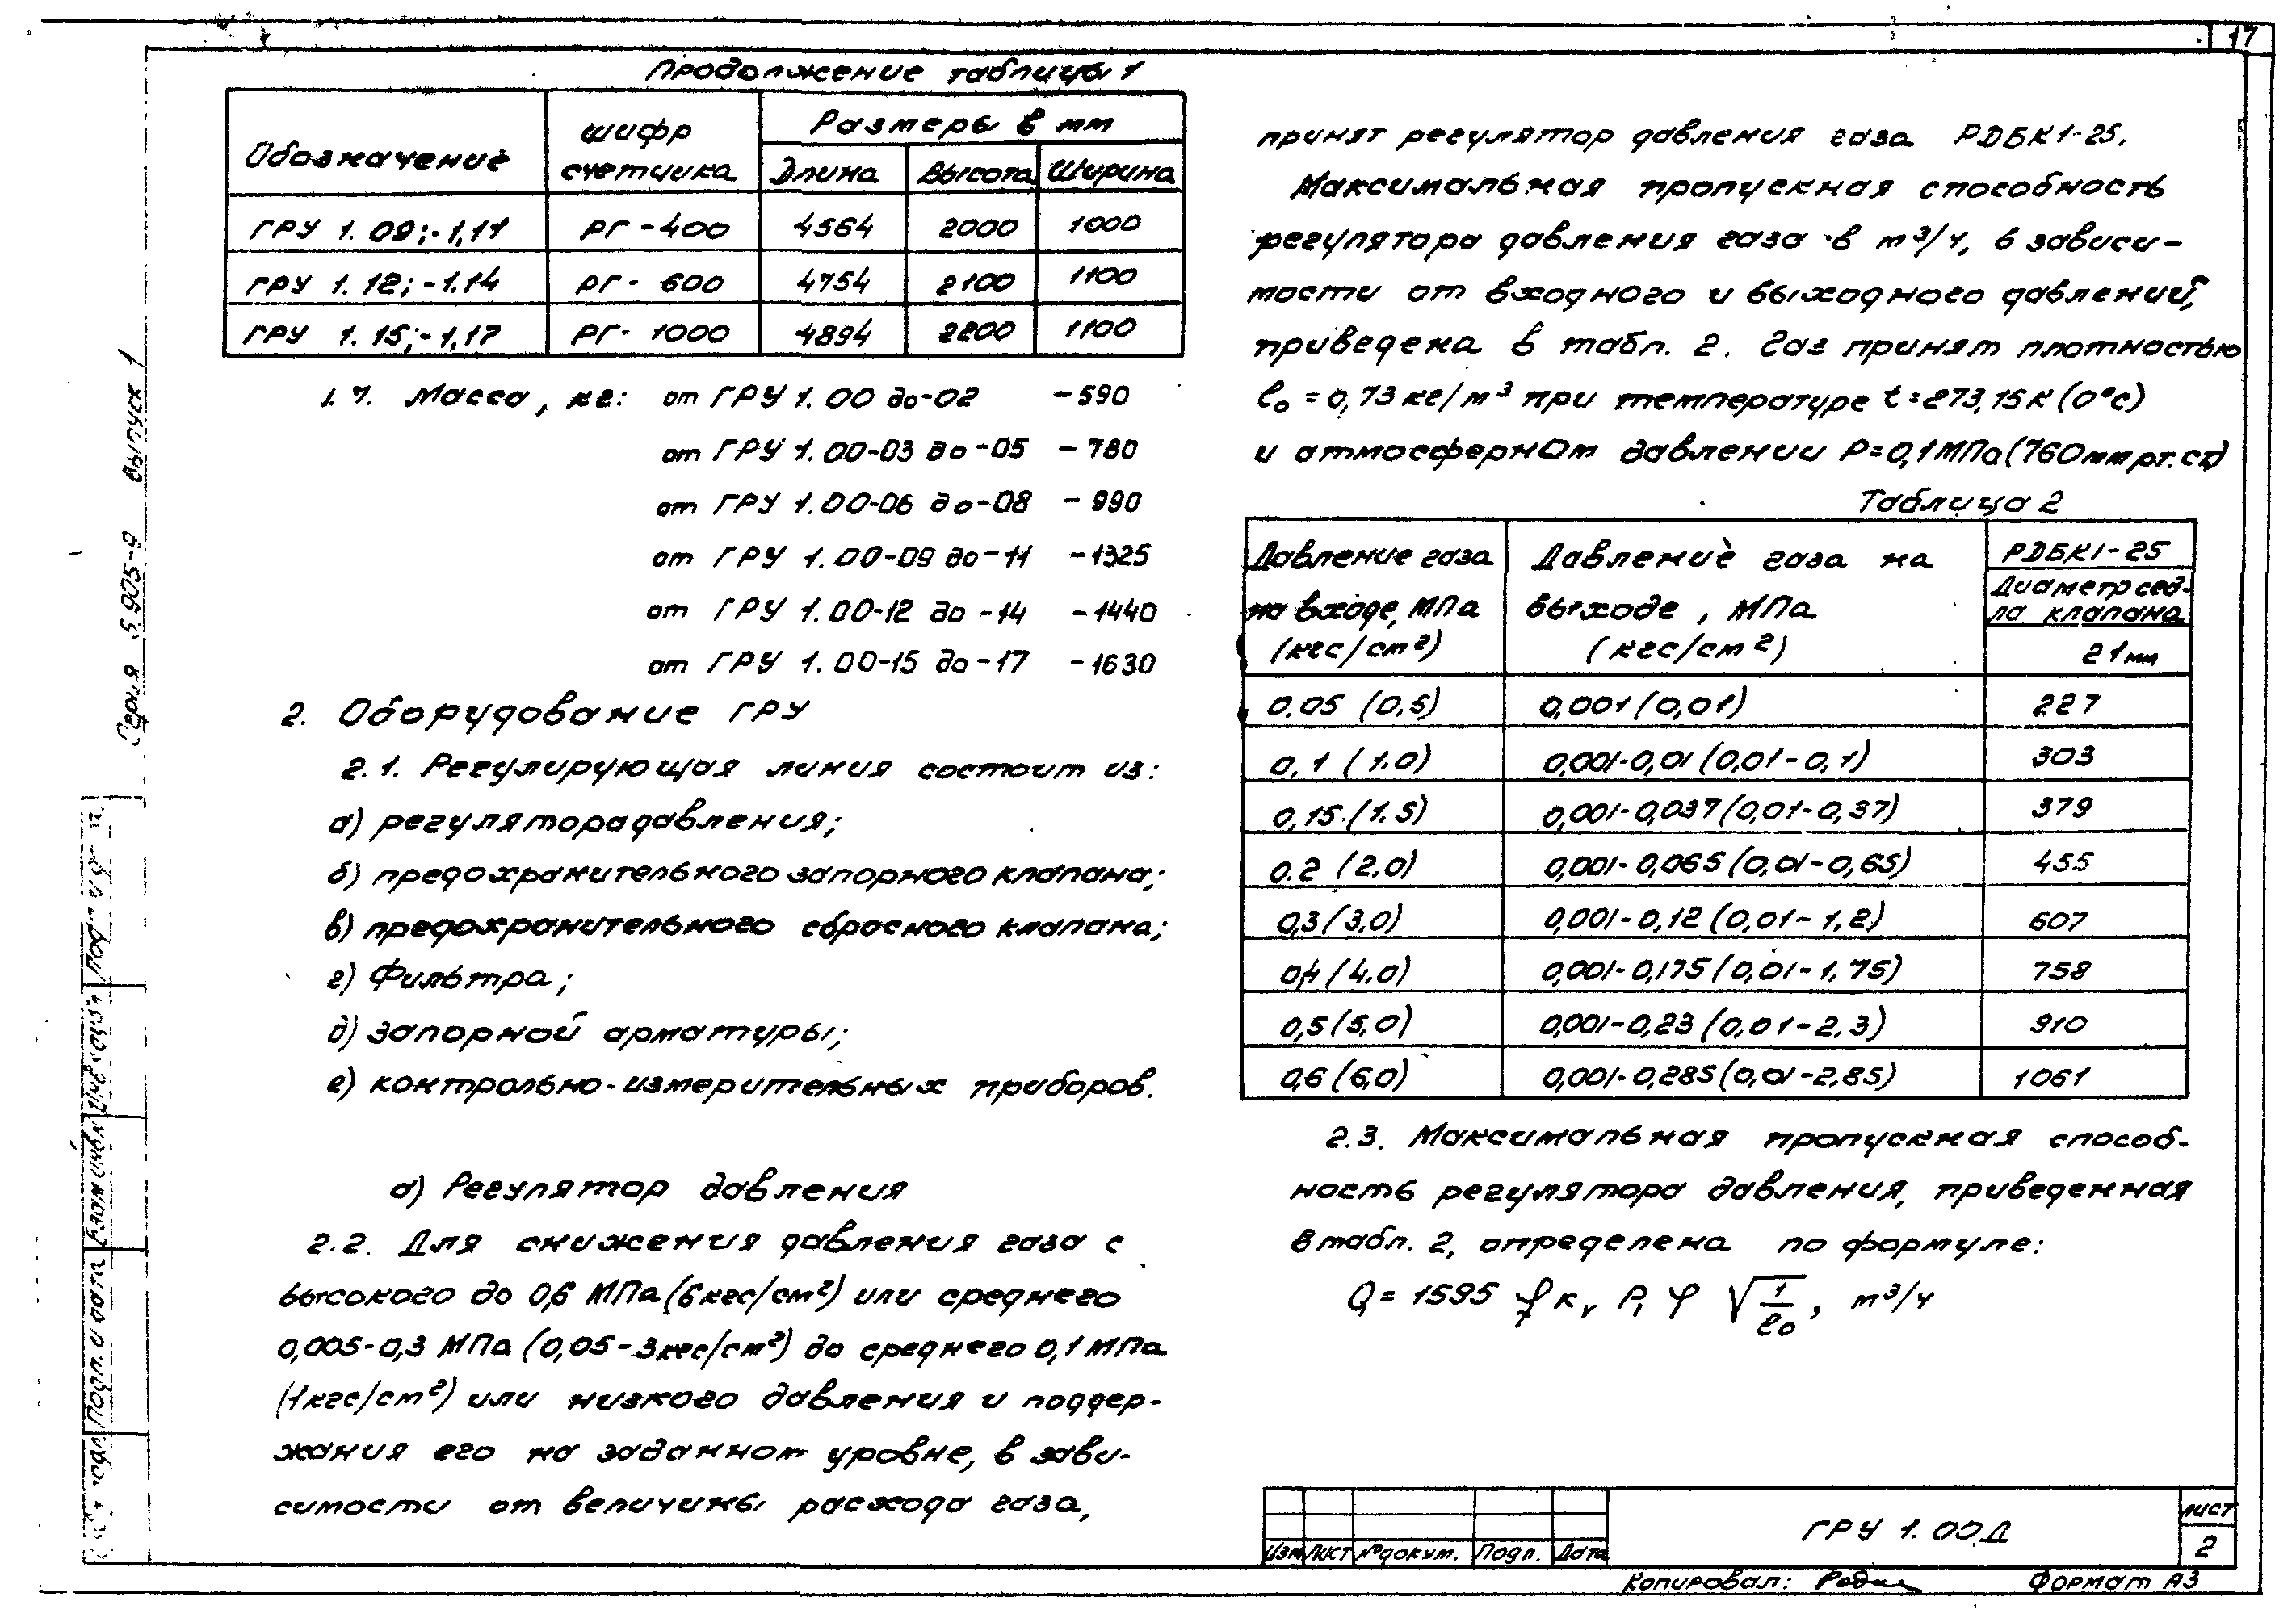 17
Продолжение таблицы 1
Обозначение | шифр счетчика | Размеры в мм
Длина | Высота | Ширина
ГРУ 1.09;-1,11 | РГ-400 | 4564 | 2000 | 1000
ГРУ 1.12;-1.14 | РГ-600 | 4754 | 2100 | 1100
ГРУ 1.15;-1,17 | РГ-1000 | 4894 | 2200 | 1100
1.7. Масса, кг: от ГРУ 1.00 до-02 -590
от ГРУ 1.00-03 до -05 -780
от ГРУ 1.00-06 до -08 -990
от ГРУ 1.00-09 до -11 -1325
от ГРУ 1.00-12 до -14 -1440
от ГРУ 1.00-15 до -17 -1630
2. Оборудование ГРУ
2.1. Регулирующая линия состоит из:
а) регулятора давления;
б) предохранительного запорного клапана;
в) предохранительного сбросного клапана;
г) Фильтра;
д) запорной арматуры;
е) контрольно-измерительных приборов.
а) Регулятор давления
2.2. Для снижения давления газа с
высокого до 0,6 МПа (6 кгс/см²) или среднего
0,005-0,3 МПа (0,05-3 кгс/см²) до среднего 0,1 МПа
(1 кгс/см²) или низкого давления и поддер-
жания его на заданном уровне, в зави-
симости от величины расхода газа,
принят регулятор давления газа РДБК1-25.
Максимальная пропускная способность
регулятора давления газа в м³/ч, в зависи-
мости от входного и выходного давлений,
приведена в табл. 2. Газ принят плотностью
ρ₀ = 0,73 кг/м³ при температуре t = 273,15К (0°С)
и атмосферном давлении Р = 0,1 МПа (760 мм рт. ст.)
Таблица 2
Давление газа на входе, МПа (кгс/см²) | Давление газа на выходе, МПа (кгс/см²) | РДБК1-25
Диаметр сед-
ла клапана
21 мм
0.05 (0,5) | 0,001 (0,01) | 227
0,1 (1.0) | 0,001-0,01 (0,01-0,1) | 303
0,15 (1.5) | 0,001-0,037 (0,01-0,37) | 379
0.2 (2.0) | 0,001-0,065 (0,01-0,65) | 455
0,3 (3,0) | 0,001-0,12 (0,01-1,2) | 607
0,4 (4,0) | 0,001-0,175 (0,01-1.75) | 758
0,5 (5,0) | 0,001-0,23 (0,01-2,3) | 910
0,6 (6,0) | 0,001-0,285 (0,01-2,85) | 1061
2.3. Максимальная пропускная способ-
ность регулятора давления, приведенная
в табл. 2, определена по формуле:
Q = 1595 f Kᵥ P₁ φ √(1/ρ₀), м³/ч
Серия 5.905-9 выпуск 1
Взам инв №
Подп. и дата
Изм Лист № докум. Подп. Дата
ГРУ 1.00Д
Лист
2
Копировал:
Формат А3